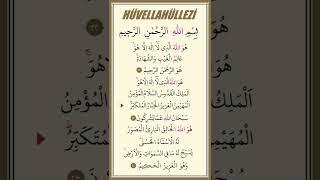 HÜVELLAHÜLLEZİ
بِسْمِ اللّٰهِ الرَّحْمٰنِ الرَّحِيمِ
هُوَ اللّٰهُ الَّذِي لَا اِلٰهَ اِلَّا هُوَ
عَالِمُ الْغَيْبِ وَالشَّهَادَةِ
هُوَ الرَّحْمٰنُ الرَّحِيمُ
هُوَ اللّٰهُ الَّذِي لَا اِلٰهَ اِلَّا هُوَ
اَلْمَلِكُ الْقُدُّوسُ السَّلَامُ الْمُؤْمِنُ
الْمُهَيْمِنُ الْعَزِيزُ الْجَبَّارُ الْمُتَكَبِّرُ
سُبْحَانَ اللّٰهِ عَمَّا يُشْرِكُونَ
هُوَ اللّٰهُ الْخَالِقُ الْبَارِئُ الْمُصَوِّرُ
لَهُ الْاَسْمَاءُ الْحُسْنٰى
يُسَبِّحُ لَهُ مَا فِي السَّمٰوَاتِ وَالْاَرْضِ
وَهُوَ الْعَزِيزُ الْحَكِيمُ